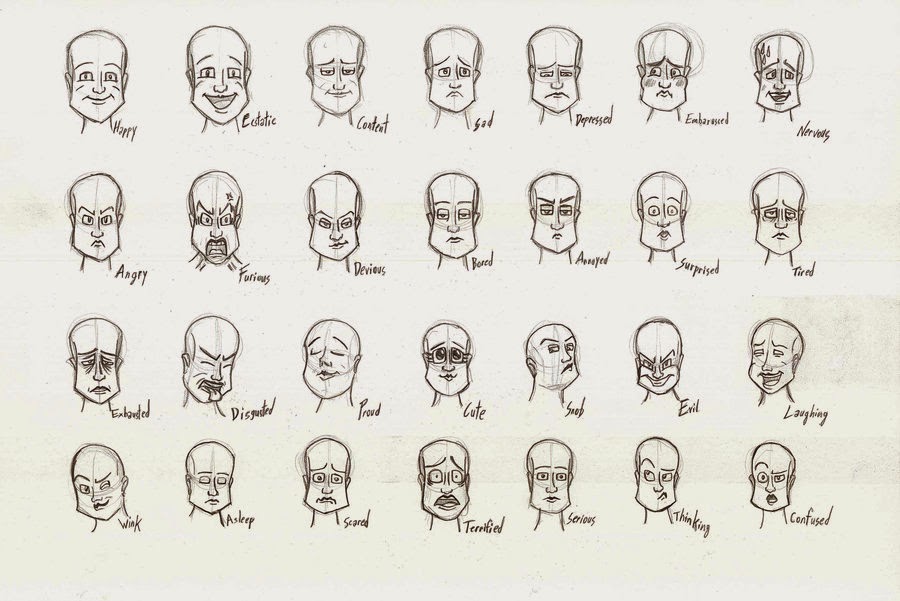 Happy
Ecstatic
Content
Sad
Depressed
Embarassed
Nervous
Angry
Furious
Devious
Bored
Annoyed
Surprised
Tired
Exhausted
Disgusted
Proud
Cute
Snob
Evil
Laughing
Wink
Asleep
Scared
Terrified
Serious
Thinking
Confused